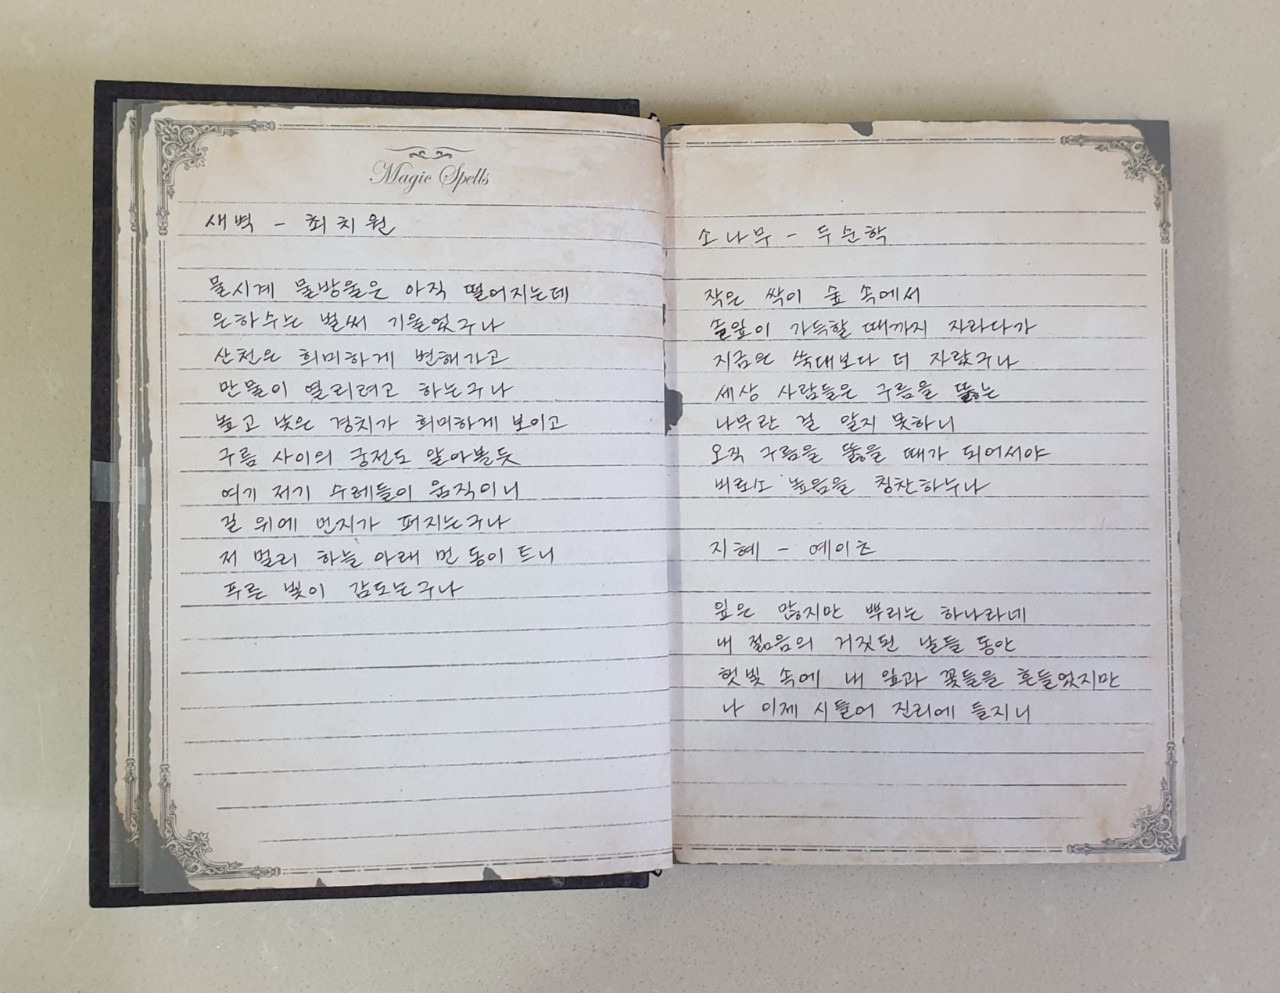 Magic Spells
새벽 - 최치원
물시계 물방울은 아직 떨어지는데
은하수는 벌써 기울었구나
산천은 희미하게 변해가고
만물이 열리려고 하는구나
높고 낮은 경치가 희미하게 보이고
구름 사이의 궁전도 알아볼듯
여기 저기 수레들이 움직이니
길 위에 먼지가 퍼지는구나
저 멀리 하늘 아래 먼 동이 트니
푸른 빛이 감도는구나
소나무 - 두순학
작은 싹이 숲 속에서
솔잎이 가득할 때까지 자라다가
지금은 쑥대보다 더 자랐구나
세상 사람들은 구름을 뚫는
나무란 걸 알지 못하니
오직 구름을 뚫을 때가 되어서야
비로소 높음을 칭찬하누나
지혜 - 예이츠
잎은 많지만 뿌리는 하나라네
내 젊음의 거짓된 날들 동안
햇빛 속에 내 잎과 꽃들을 흔들었지만
나 이제 시들어 진리에 들지니